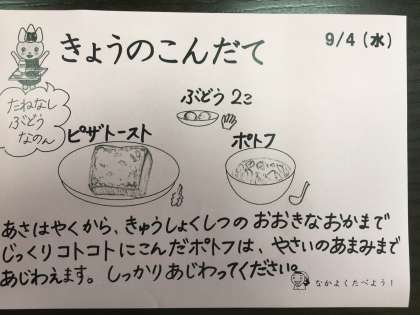 きょうのこんだて
9/4(水)
たねなし
ぶどう
なのん
ぶどう2こ
ピザトースト
ポトフ
あさはやくから、きゅうしょくしつの おおきなおかまで
じっくりコトコトにこんだポトフは、やさいのあまみまで
あじわえます。しっかりあじわってください。
なかよくたべよう！